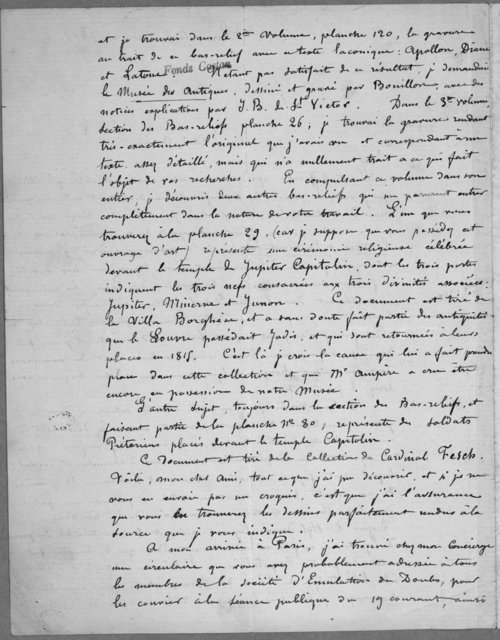 et je trouvai dans le 2me Volume, planche 120, la gravure
au trait de ce bas-relief avec ce texte laconique : Apollon, Diane
et Latone. N'étant pas satisfait de ce résultat, je demandai
Fonds Castan
le Musée des Antiques, dessiné et gravé par Bouillon, avec des
notices explicatives par J. B. de St Victor. Dans le 3me volume,
section des Bas-reliefs planche 26, je trouvai la gravure rendant
très-exactement l'original que j'avais vu et correspondant à un
texte assez détaillé, mais qui n'a nullement trait à ce qui fait
l'objet de vos recherches. En compulsant ce volume dans son
entier, je découvris deux autres bas-reliefs, qui me parurent entrer
complètement dans la nature de votre travail. L'un que vous
trouverez à la planche 29, (car je suppose que vous possédez cet
ouvrage d'art) représente une cérémonie religieuse célébrée
devant le temple de Jupiter Capitolin, dont les trois portes
indiquent les trois nefs consacrées aux trois divinités associées :
Jupiter, Minerve et Junon. Ce document est tiré de
la Villa Borghèse, et a sans doute fait partie des antiquités
que le Louvre possédait jadis, et qui sont retournées à leurs
places en 1815. C'est là je crois la cause qui lui a fait prendre
place dans cette collection et que Mr Ampère a cru être
encore en possession de notre Musée.
L'autre sujet, toujours dans la section des Bas-reliefs, et
faisant partie de la planche No 30, représente des soldats
Prétoriens placés devant le temple Capitolin.
Ce document est tiré de la Collection du Cardinal Fesch.
Voilà, mon cher Ami, tout ce que j'ai pu découvrir, et si je ne
vous en envoie pas un croquis, c'est que j'ai l'assurance
que vous en trouverez les dessins parfaitement rendus à la
source que je vous indique.
A mon arrivée à Paris, j'ai trouvé chez mon Concierge
une circulaire que vous avez probablement adressée à tous
les membres de la société d'Emulation du Doubs, pour
les convier à la séance publique du 19 courant, ainsi